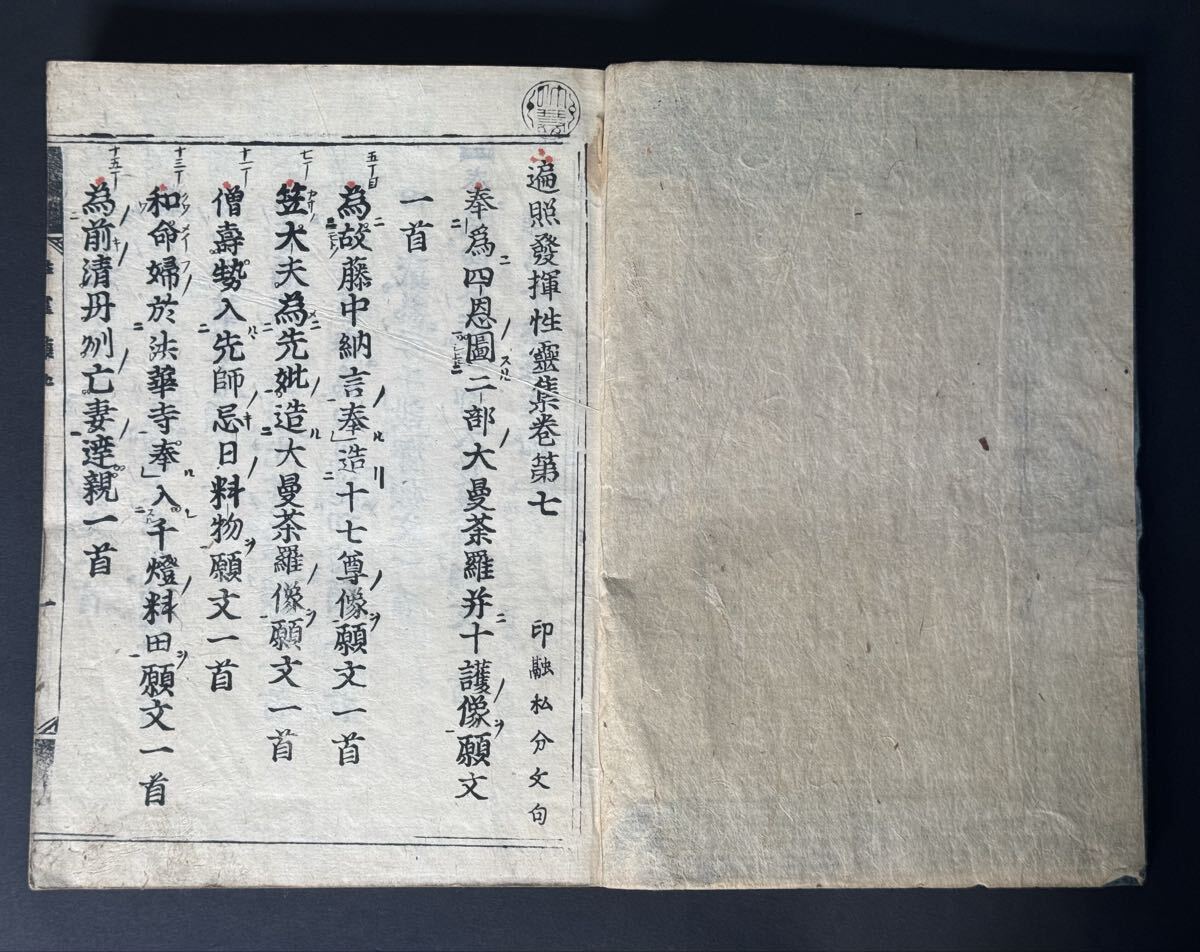 遍照發揮性靈集卷第七
印融私分文句
奉爲四恩圖二部大曼荼羅并十護像願文
一首
五丁目
為故藤中納言奉造十七尊像願文一首
七丁
笠大夫為先妣造大曼荼羅像願文一首
十一丁
僧壽勢入先師忌日料物願文一首
十三丁
和命婦於法華寺奉入千燈料田願文一首
十五丁
為前清丹州亡妻達親一首
一